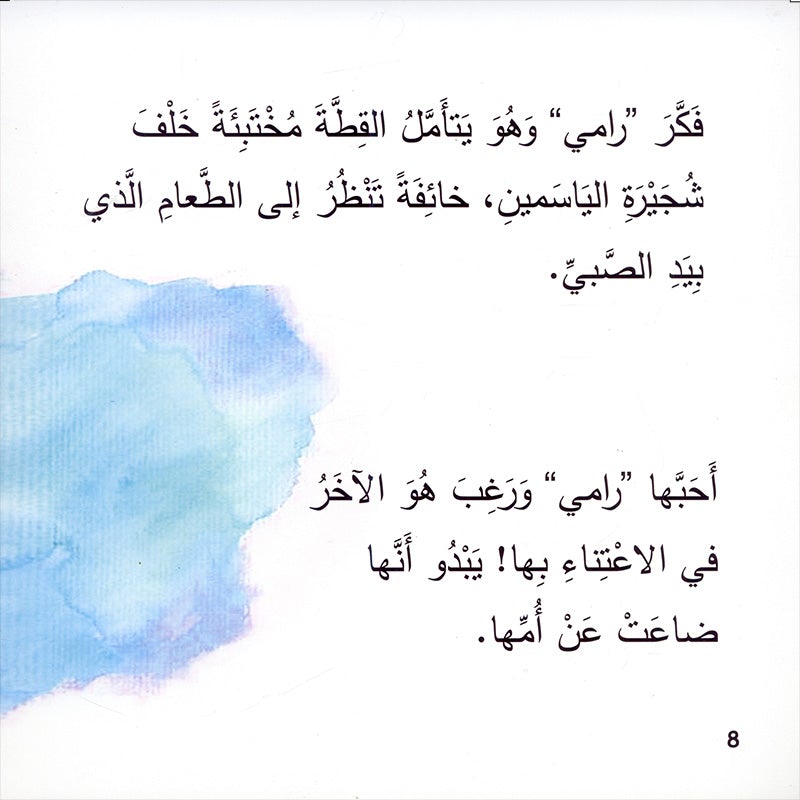 فَكَّرَ ”رامي“ وَهُوَ يَتأَمَّلُ القِطَّةَ مُخْتَبِئَةً خَلْفَ
شُجَيْرَةِ اليَاسَمينِ، خائِفَةً تَنْظُرُ إلى الطَّعامِ الَّذي
بِيَدِ الصَّبيِّ.
أَحَبَّها ”رامي“ وَرَغِبَ هُوَ الآخَرُ
في الاعْتِناءِ بِها! يَبْدُو أَنَّها
ضاعَتْ عَنْ أُمِّها.
8